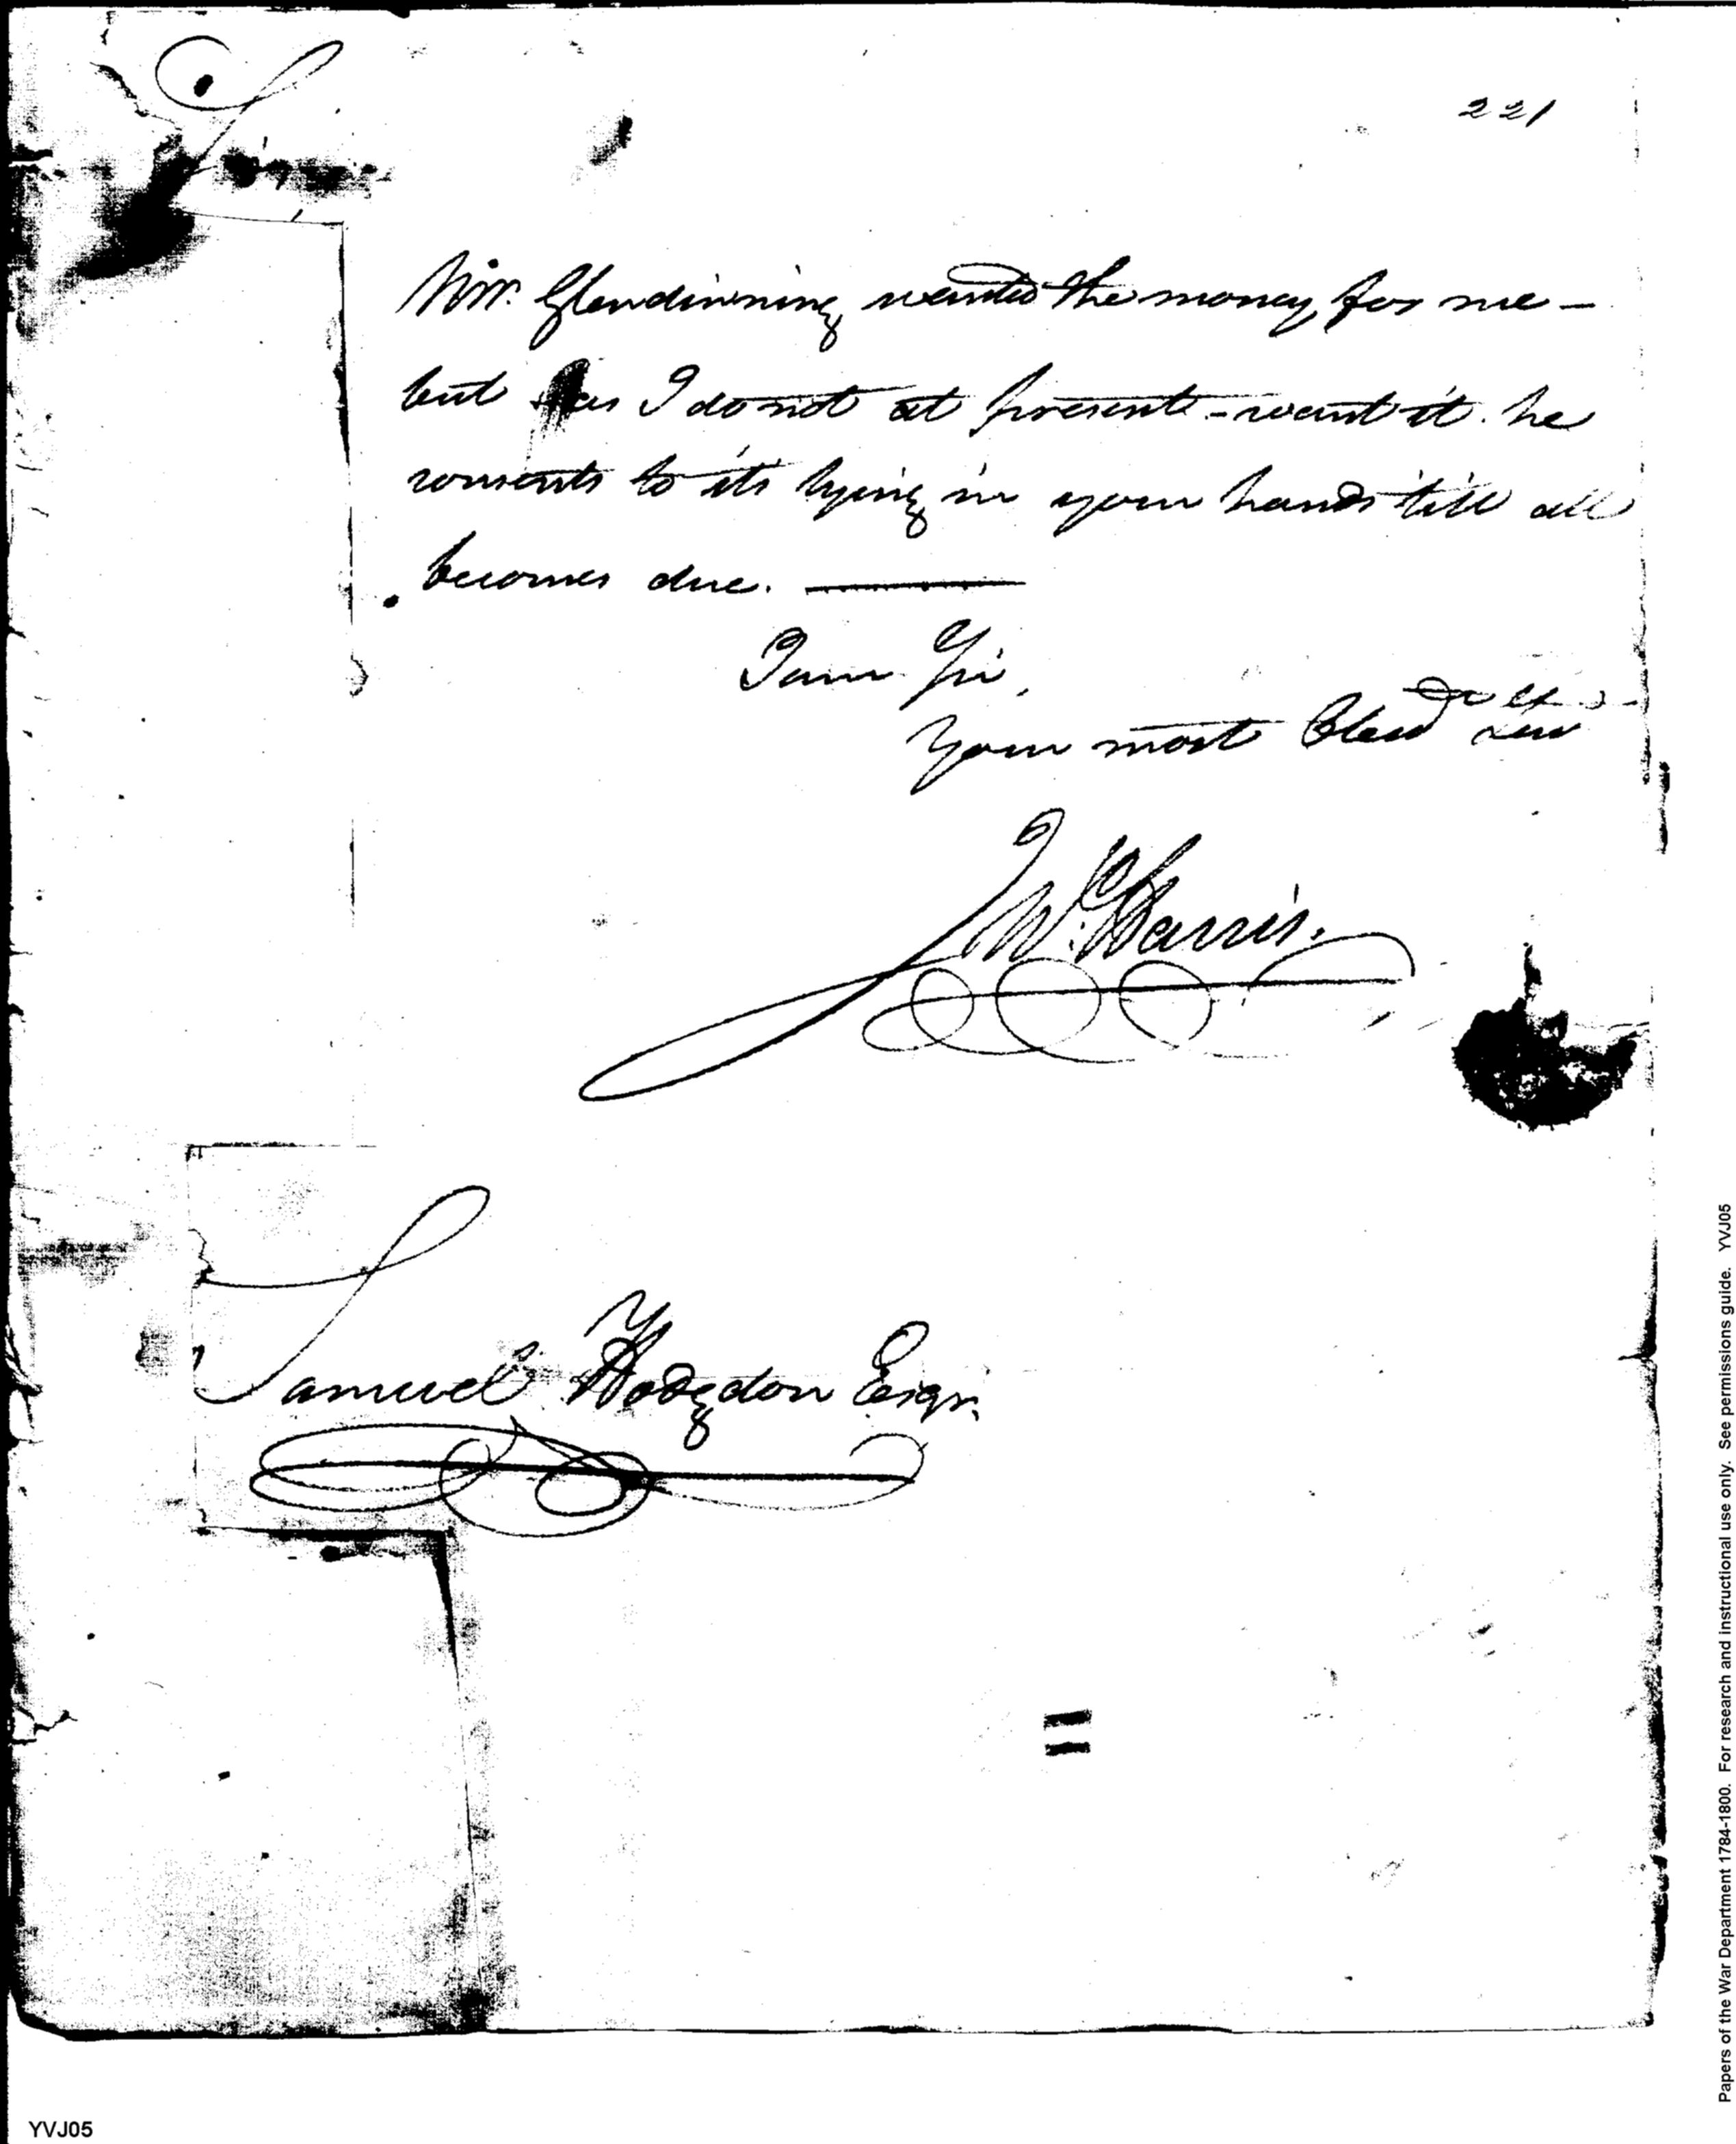 221
Sir,
Mr. Glendinning wanted the money for me —
but as I do not at present - want it. he
consents to its lying in your hands till all
becomes due. ———
I am Sir,
Your most Obed Serv
Jn W. Harris.
Samuel Hodgdon Esqr.
YVJ05
Papers of the War Department 1784-1800. For research and instructional use only. See permissions guide. YVJ05